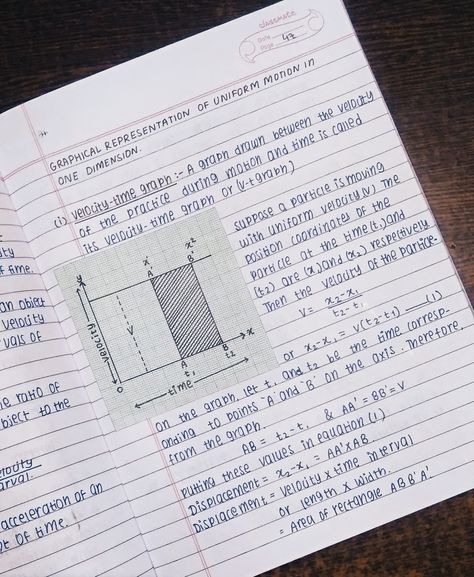 classmate
Date
Page 42
GRAPHICAL REPRESENTATION OF UNIFORM MOTION IN
ONE DIMENSION.
(i) velocity-time graph :- A graph drawn between the velocity
of the practice during motion and time is called
its velocity-time graph or (v-t graph)
suppose a particle is moving
with uniform velocity(v) The
position coordinates of the
particle at the time(t,) and
(t2) are (x,) and (x2) respectively
Then the velocity of the particle.
V = x2-x1
t2-t1
or x2-x1 = v(t2-t1) — (1)
y
x'
x'
A'
velocity
V
O
A
B
x
t1
t2
time
on the graph, let t, and t2 be the time corresp-
onding to points 'A' and 'B' on the axis. Therefore,
from the graph.
AB = t2-t, & AA' = BB' = V
putting these values in equation (1)
Displacement = x2-x1 = AA'XAB
Displacement = velocity x time interval
or length x width.
= Area of rectangle ABB'A'
uty
of time.
an object
velocity
rvals of
e ratio of
bject to the
elocity
erval.
acceleration of an
t of time.